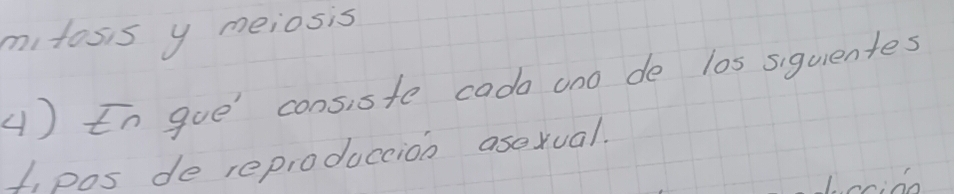 mitosis y meiosis
4) En qué consiste cada uno de los siguientes
tipos de reproducción asexual.